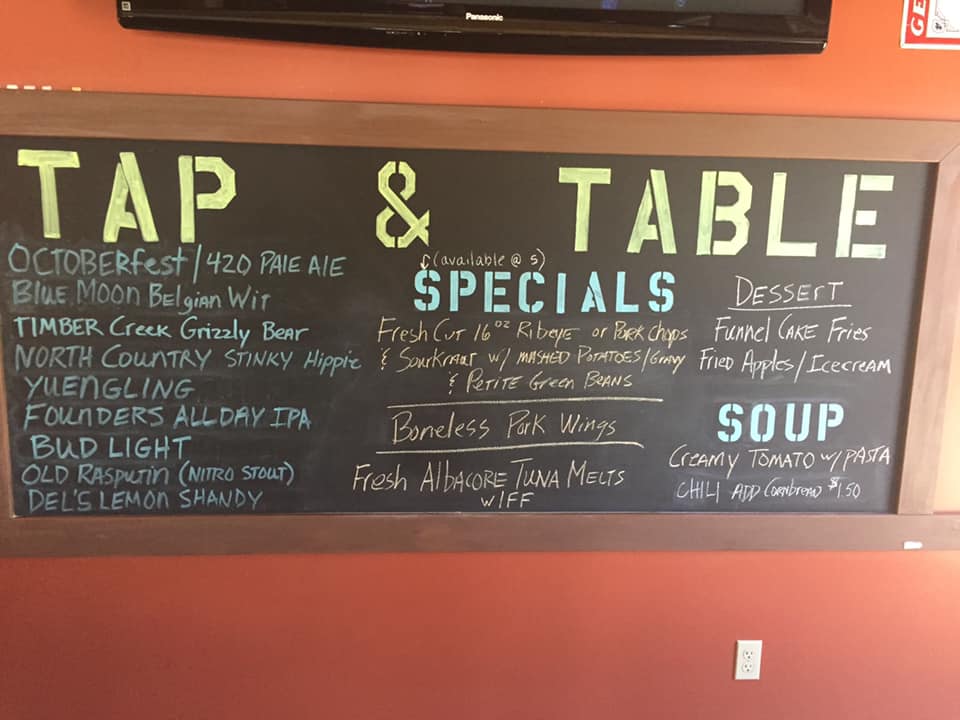 Panasonic
GE
TAP & TABLE
OCTOBERfest/420 PALE ALE
BLUE MOON BELGIAN WIT
TIMBER Creek Grizzly Bear
NORTH COUNTRY STINKY Hippie
YUENGLING
FOUNDERS ALL DAY IPA
BUD LIGHT
OLD RASPUTIN (NITRO STOUT)
DEL'S LEMON SHANDY
(available @ 5)
SPECIALS
FRESH CUT 16oz RIBEYE OR PORK CHOPS
& SOURKRAUT W/ MASHED POTATOES/GRAVY
& PETITE GREEN BEANS
Boneless Pork Wings
FRESH ALBACORE TUNA MELTS
W/FF
DESSERT
FUNNEL CAKE FRIES
FRIED APPLES/ICECREAM
SOUP
CREAMY TOMATO W/ PASTA
CHILI ADD CORNBREAD $1.50